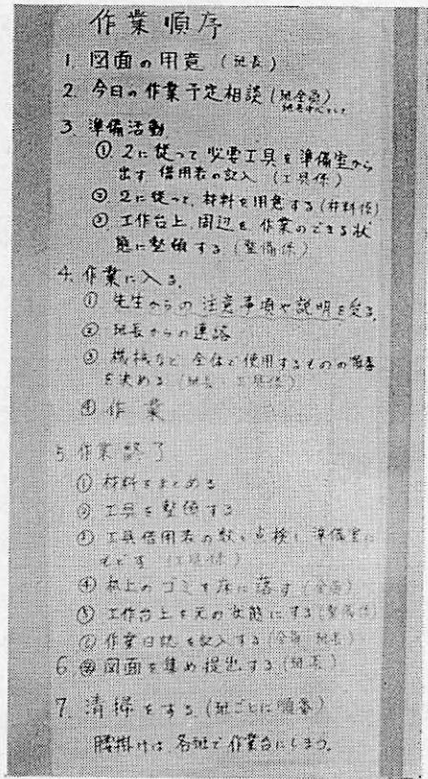 作業順序
1. 図面の用意 (班長)
2. 今日の作業予定相談 (班全員)
3. 準備活動
① 2に従って 必要工具を準備室から
出す 借用表の記入 (工具係)
② 2に従って、材料を用意する (材料係)
③ 工作台上、周辺を作業のできる状
態に整頓する (整備係)
4. 作業に入る。
① 先生からの注意事項や説明を受る。
② 班長からの連絡
③ 機械など 全体で使用するものの順番
を決める (班長・工具係)
④ 作業
5 作業終了
① 材料をまとめる
② 工具を整頓する
③ 工具借用表の数、点検し 準備室に
もどす (工具係)
④ 机上のゴミを床に落す (全員)
⑤ 工作台上を元の状態にする (整備係)
⑥ 作業日誌を記入する (全員 班長)
6. 図面を集め提出する (班長)
7. 清掃をする (班ごとに順番)
腰掛けは 各班で作業台にしまう。